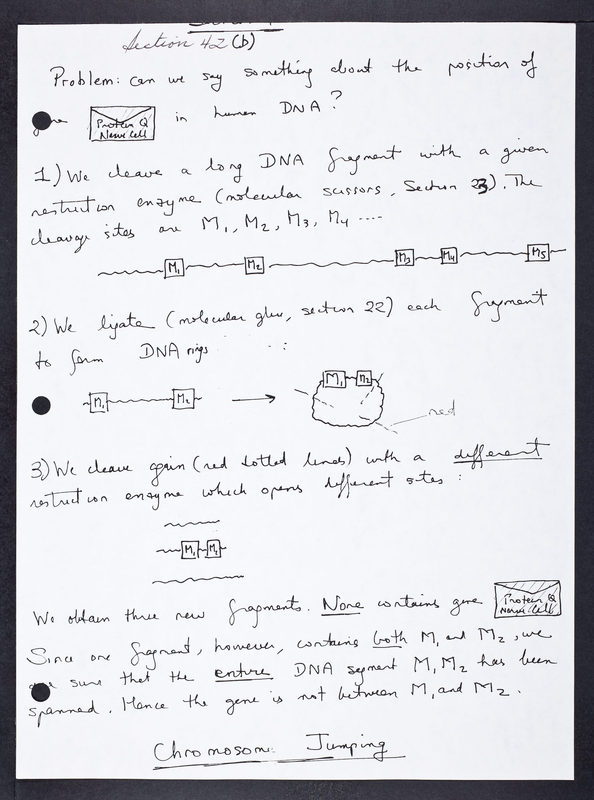 Section 42 (b)
Problem: can we say something about the position of
gene Protein Q Nerve Cell in human DNA?
1) We cleave a long DNA fragment with a given
restriction enzyme (molecular scissors, Section 23). The
cleavage sites are M1, M2, M3, M4 ....
M1 M2 M3 M4 M5
2) We ligate (molecular glue, section 22) each fragment
to form DNA rings :
M1 M2 → M1 M2
red
3) We cleave again (red dotted lines) with a different
restriction enzyme which opens different sites :
M1 M2
We obtain three new fragments. None contains gene Protein Q Nerve Cell
Since one fragment, however, contains both M1 and M2, we
are sure that the entire DNA segment M1 M2 has been
spanned. Hence the gene is not between M1 and M2.
Chromosome Jumping